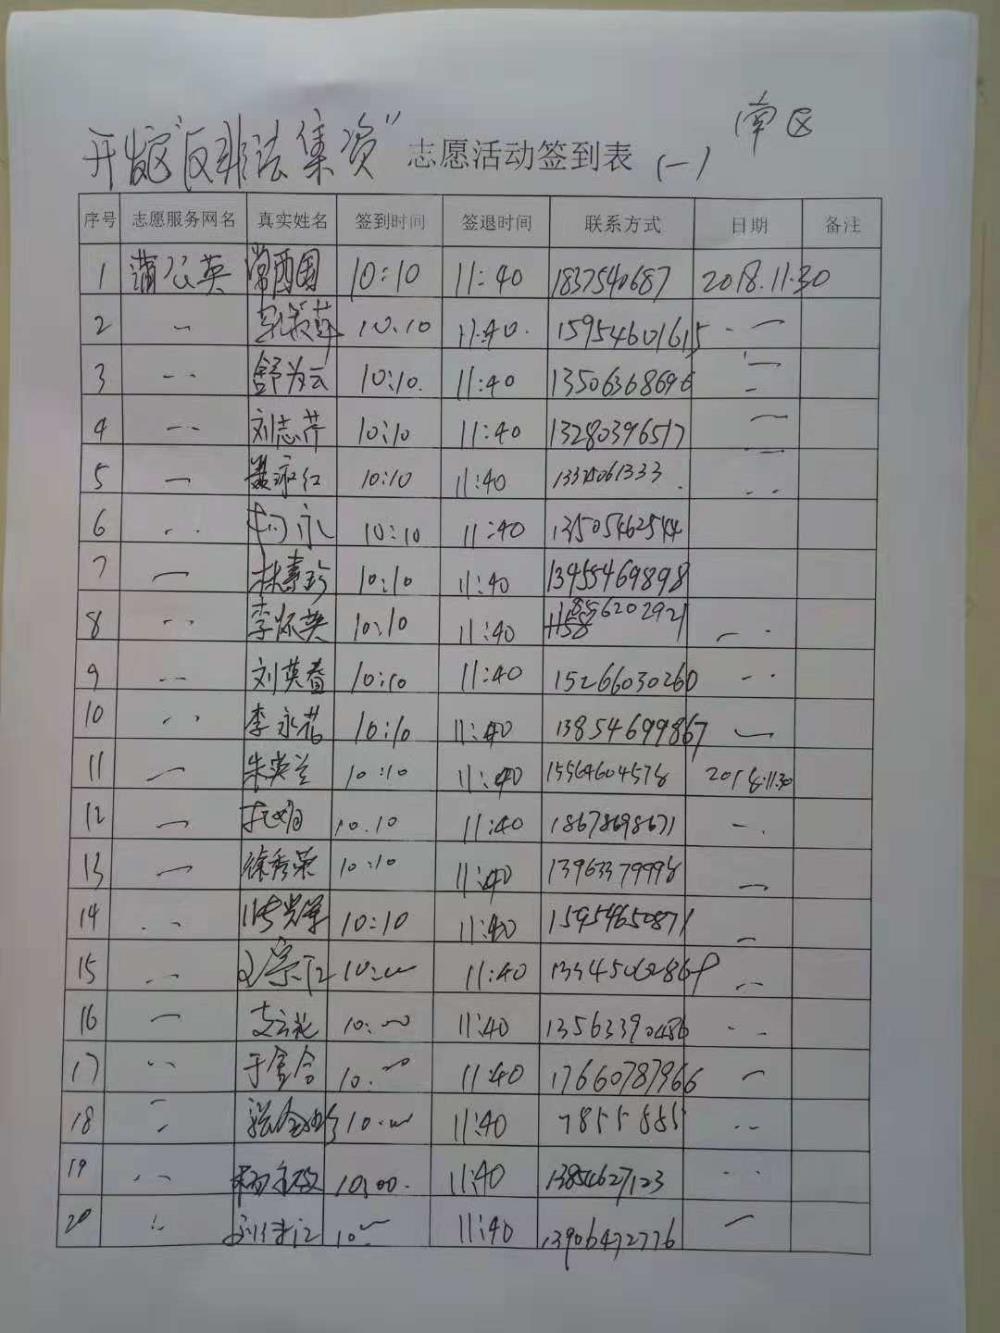 南区
开发区"反非法集资"志愿活动签到表(一)
序号 志愿服务网名 真实姓名 签到时间 签退时间 联系方式 日期 备注
1 蒲公英 10:10 11:40 1837540687 2018.11.30
2 10:10 11:40 15954601615
3 舒为云 10:10 11:40 13506368696
4 刘志芹 10:10 11:40 13280396517
5 聂永红 10:10 11:40
6 10:10 11:40 13505462544
7 林素珍 10:10 11:40 13455469898
8 李怀英 10:10 11:40
9 刘英春 10:10 11:40 15266030260
10 李永花 10:10 11:40 13854699867
11 朱英兰 10:10 11:40 15564604578 2018.11.30
12 10.10 11:40 18678698671
13 徐秀荣 10:10 11:40 13963379998
14 10:10 11:40 15954650871
15 11:40
16 11:40 13563390486
17 于金合 11:40 17660787966
18 11:40 7855885
19 10:00 11:40 13854627123
20 11:40 13906472776